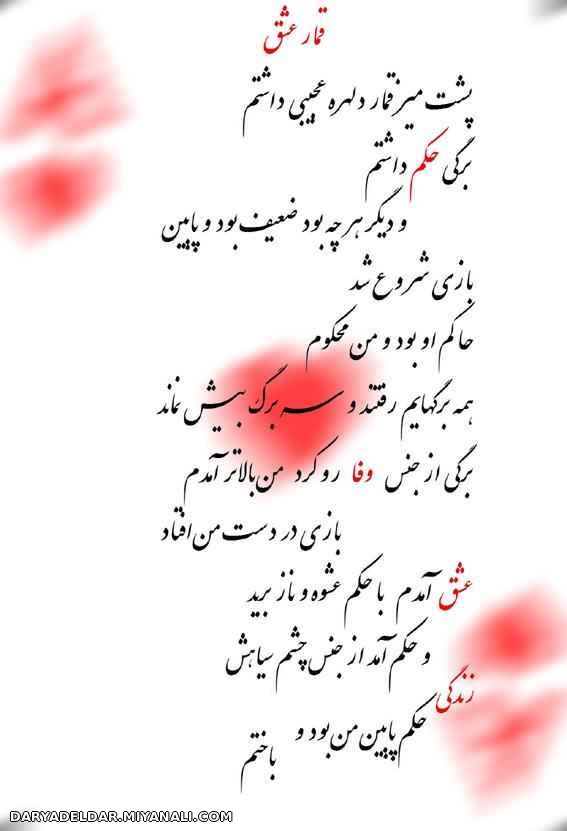 قمار عشق
پشت میز قمار دلهره عجیبی داشتم
برگی حکم داشتم
و دیگر هر چه بود ضعیف بود و پایین
بازی شروع شد
حاکم او بود و من محکوم
همه برگهایم رفتند و سه برگ بیش نماند
برگی از جنس وفا رو کرد من بالاتر آمدم
بازی در دست من افتاد
عشق آمدم با حکم عشوه و ناز برید
و حکم آمد از جنس چشم سیاهش
زندگی
حکم پایین من بود و باختم
DARYADELDAR.MIYANALI.COM